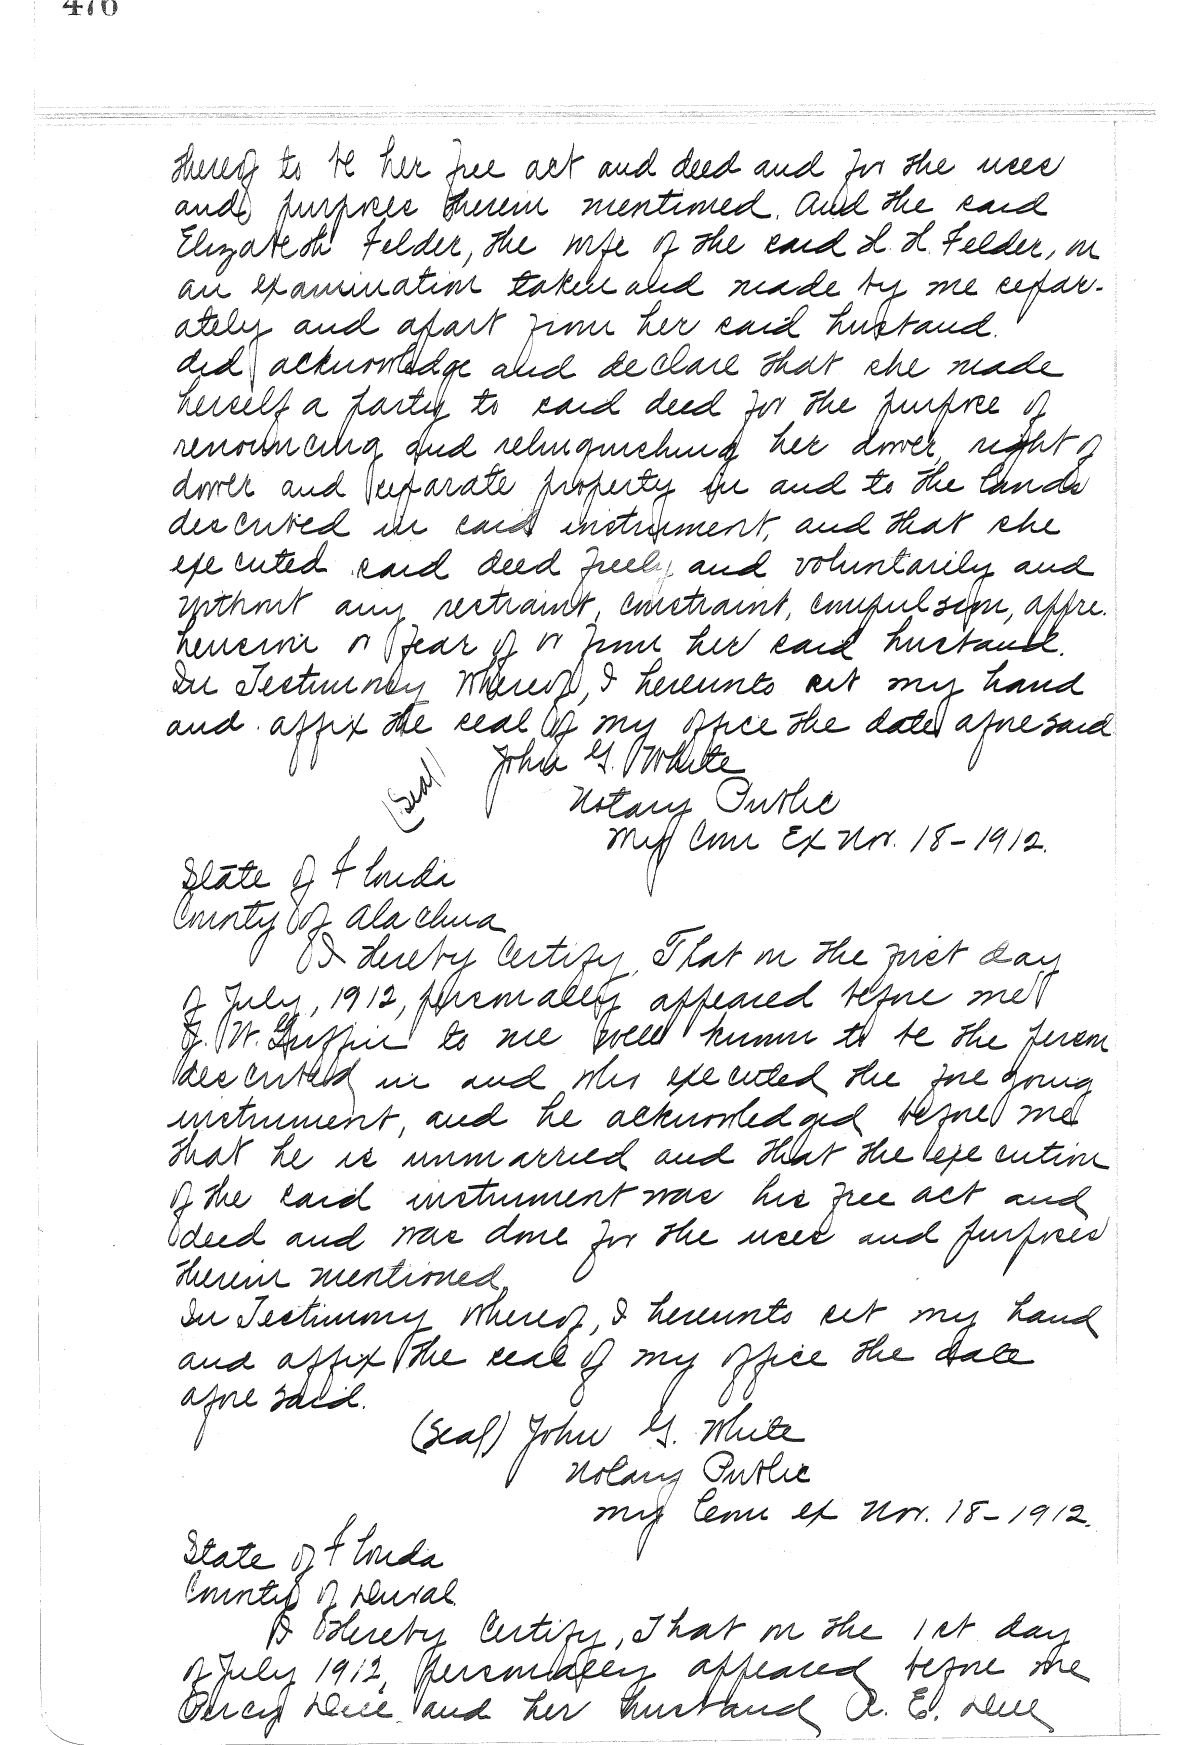 476
thereof to be her free act and deed and for the uses
and purposes therein mentioned. And the said
Elizabeth Felder, the wife of the said H. H. Felder, on
an examination taken and made by me separ-
ately and apart from her said husband.
did acknowledge and declare that she made
herself a party to said deed for the purpose of
renouncing and relinquishing her dower, right of
dower and separate property in and to the lands
described in said instrument, and that she
executed said deed freely and voluntarily and
without any restraint, constraint, compulsion, appre-
hension or fear of or from her said husband.
In Testimony Whereof, I hereunto set my hand
and affix the seal of my office the date aforesaid
(Seal) John G. White
Notary Public
My Com Ex Nov. 18-1912.
State of Florida
County of Alachua
I Hereby Certify, That on the first day
of July, 1912, personally appeared before me
J. W. Griffin to me well known to be the person
described in and who executed the foregoing
instrument, and he acknowledged before me
that he is unmarried and that the execution
of the said instrument was his free act and
deed and was done for the uses and purposes
therein mentioned,
In Testimony Whereof, I hereunto set my hand
and affix the seal of my office the date
aforesaid.
(Seal) John G. White
Notary Public
My Com ex Nov. 18-1912.
State of Florida
County of Duval
I Hereby Certify, That on the 1st day
of July 1912, personally appeared before me
Percy and her husband A. E.